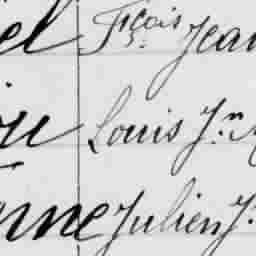 el Fçois Jean
ou Louis Jn M
onne Julien J.